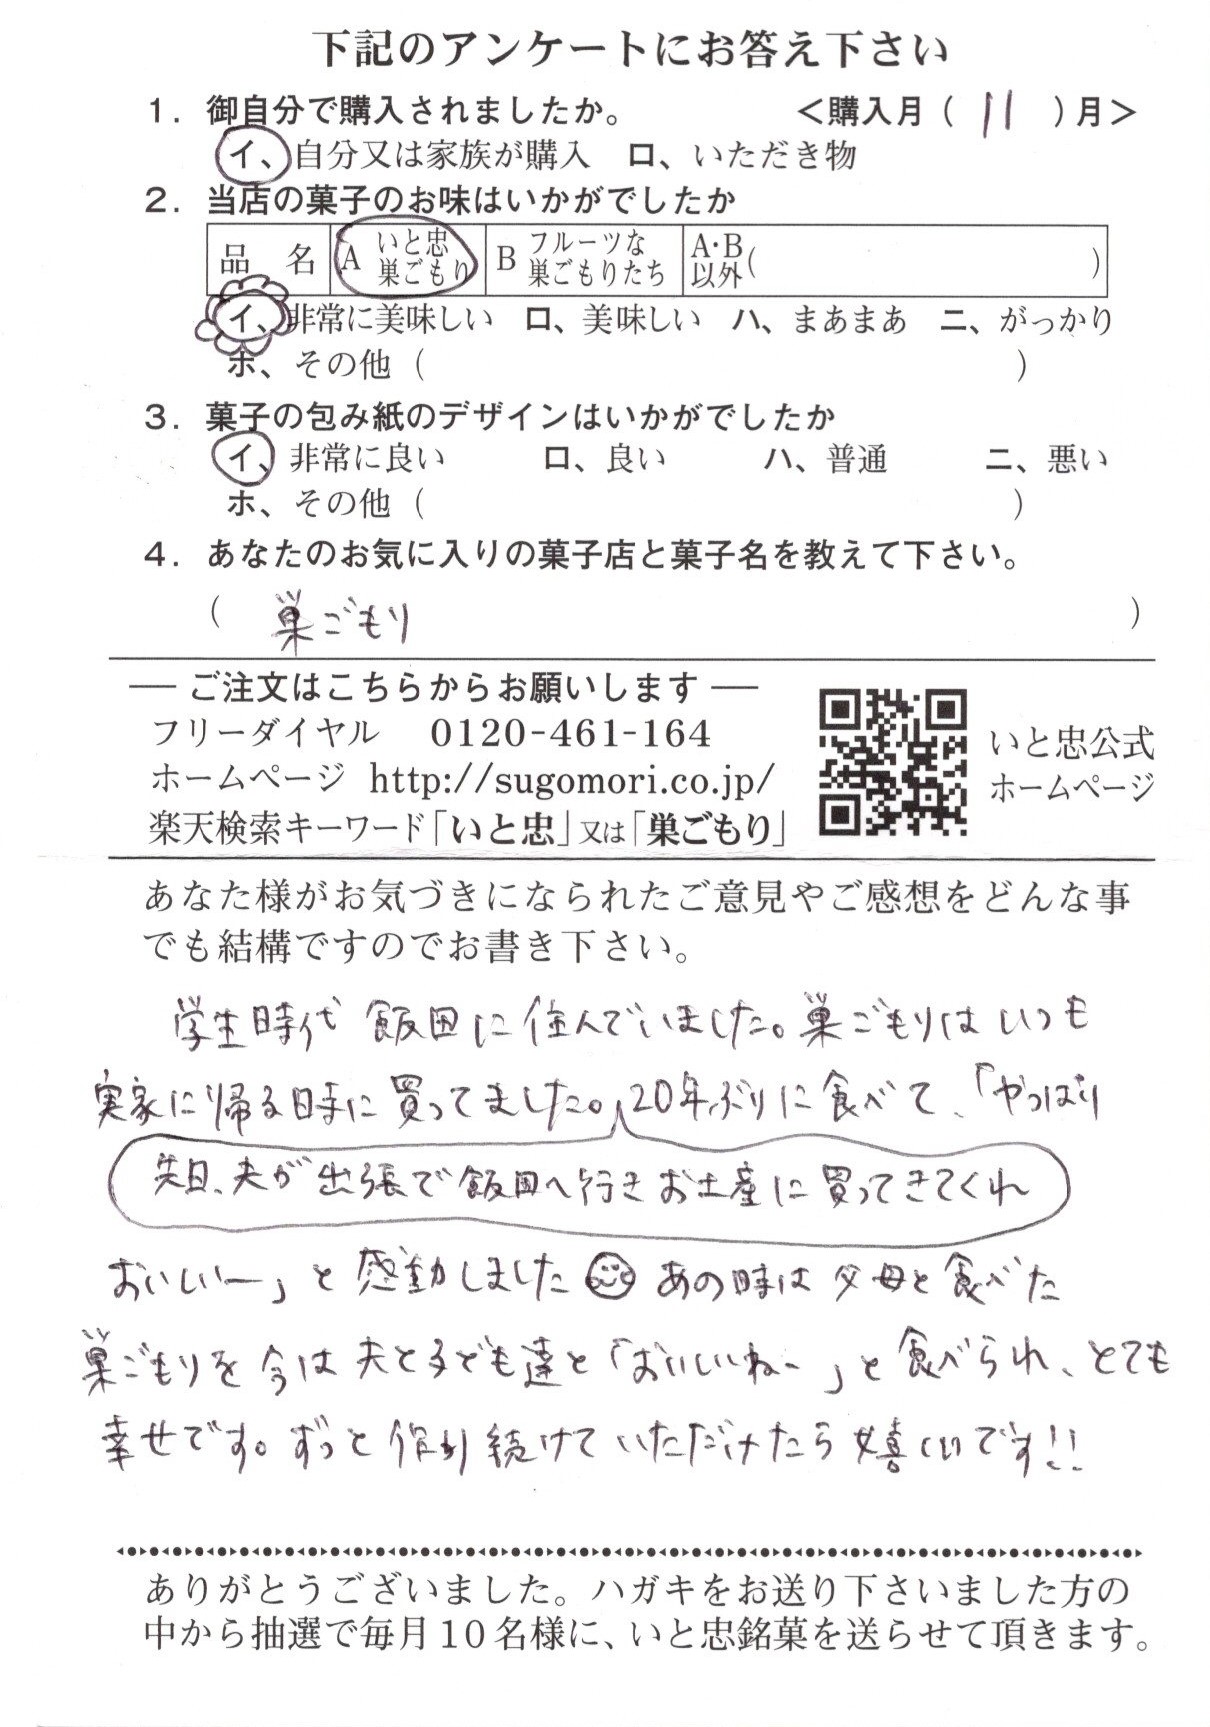 下記のアンケートにお答え下さい
1. 御自分で購入されましたか。 <購入月( 11 )月>
イ、自分又は家族が購入 ロ、いただき物
2. 当店の菓子のお味はいかがでしたか
品 名 A いと忠 巣ごもり B フルーツな 巣ごもりたち A・B 以外( )
イ、非常に美味しい ロ、美味しい ハ、まあまあ ニ、がっかり
ホ、その他( )
3. 菓子の包み紙のデザインはいかがでしたか
イ、非常に良い ロ、良い ハ、普通 ニ、悪い
ホ、その他( )
4. あなたのお気に入りの菓子店と菓子名を教えて下さい。
( 巣ごもり )
― ご注文はこちらからお願いします ―
フリーダイヤル 0120-461-164
ホームページ http://sugomori.co.jp/
楽天検索キーワード「いと忠」又は「巣ごもり」
いと忠公式
ホームページ
あなた様がお気づきになられたご意見やご感想をどんな事
でも結構ですのでお書き下さい。
学生時代 飯田に住んでいました。巣ごもりはいつも
実家に帰る時に買ってました。20年ぶりに食べて、「やっぱり
先日、夫が出張で飯田へ行きお土産に買ってきてくれ
おいしいー」と感動しました あの時は父母と食べた
巣ごもりを今は夫と子ども達と「おいしいねー」と食べられ、とても
幸せです。ずっと作り続けていただけたら嬉しいです!!
ありがとうございました。ハガキをお送り下さいました方の
中から抽選で毎月10名様に、いと忠銘菓を送らせて頂きます。